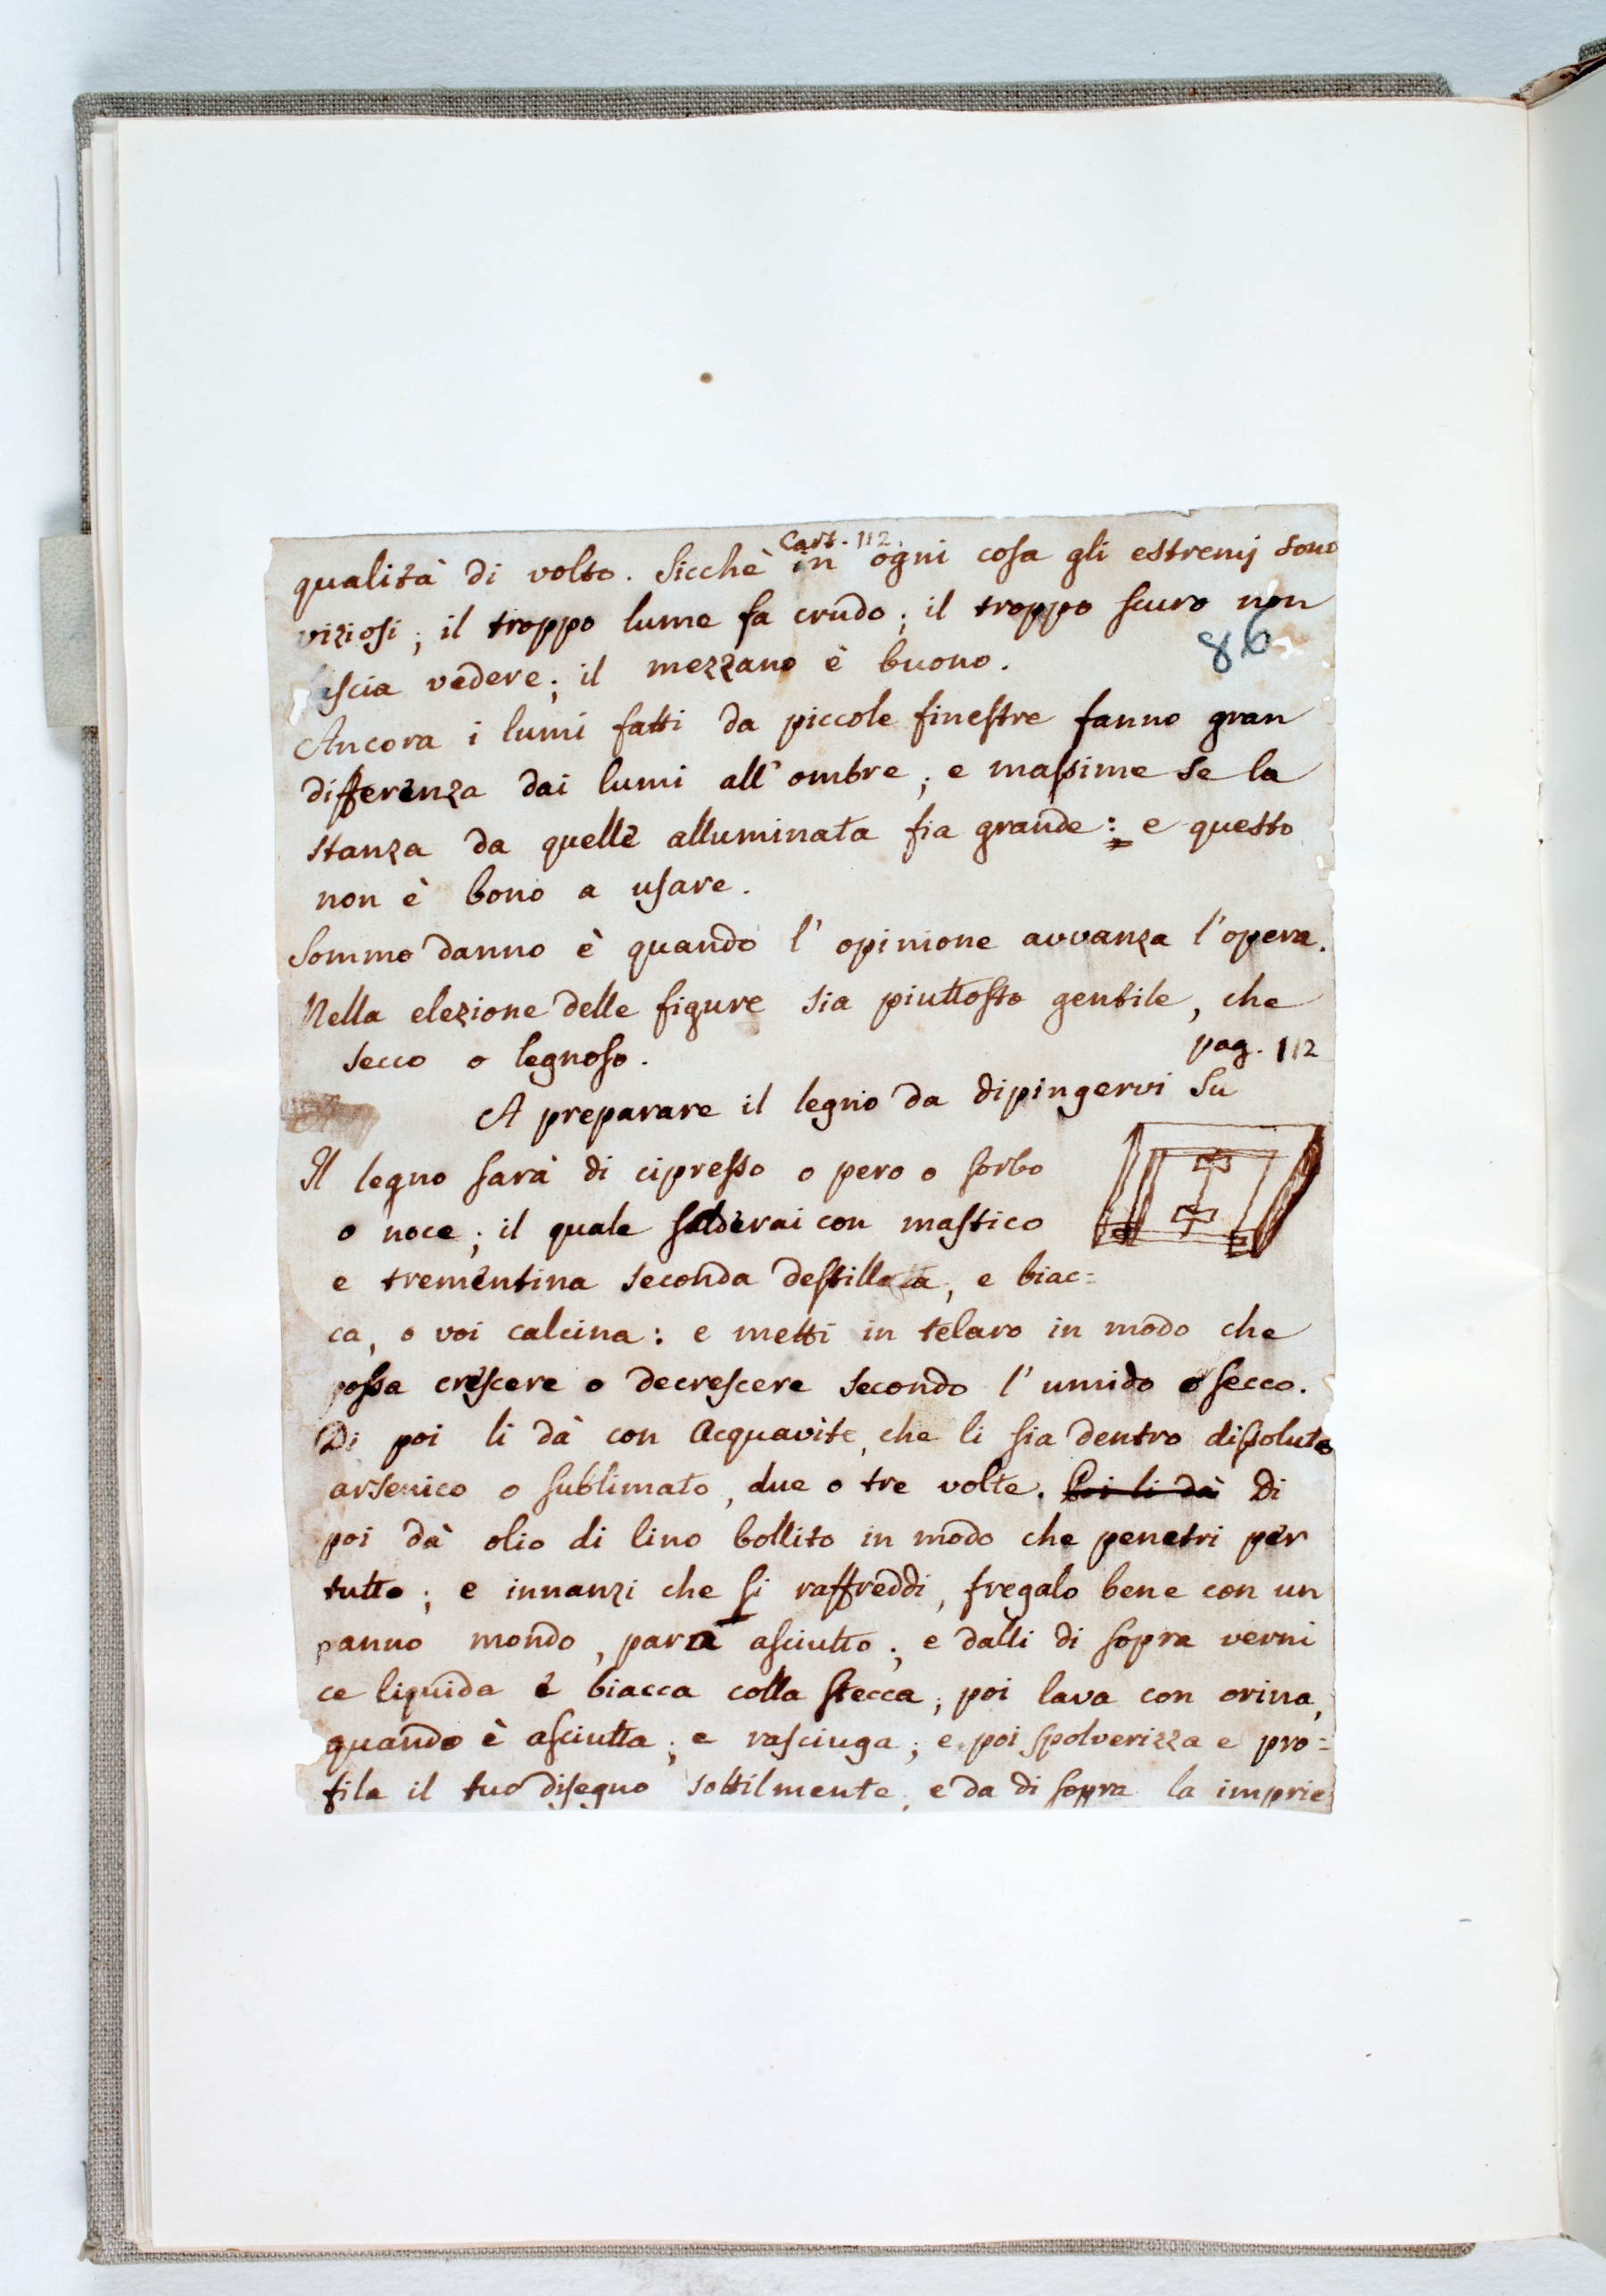 Cart. 112.
qualità di volto. Sicchè in ogni cosa gli estremj sono
viziosi; il troppo lume fa crudo; il troppo scuro non
86
lascia vedere; il mezzano è buono.
Ancora i lumi fatti da piccole finestre fanno gran
differenza dai lumi all'ombre; e massime se la
stanza da quelle alluminata fia grande: e questo
non è bono a usare.
Sommo danno è quando l'opinione avvanza l'opera.
Nella elezione delle figure sia piuttosto gentile, che
secco o legnoso.
pag. 112
A preparare il legno da dipingervi su
Il legno sarà di cipresso o pero o sorbo
o noce; il quale salderai con mastico
e trementina seconda destillata, e biac=
ca, o voi calcina: e metti in telaro in modo che
possa crescere o decrescere secondo l'umido o secco.
Di poi li dà con Acquavite, che li sia dentro dissoluto
arsenico o sublimato, due o tre volte. Poi li dà Di
poi dà olio di lino bollito in modo che penetri per
tutto; e innanzi che si raffreddi, fregalo bene con un
panno mondo, parà asciutto; e dalli di sopra verni
ce liquida e biacca colla stecca; poi lava con orina,
quando è asciutta; e rasciuga; e poi spolverizza e pro=
fila il tuo disegno sottilmente, e da di sopra la imprie